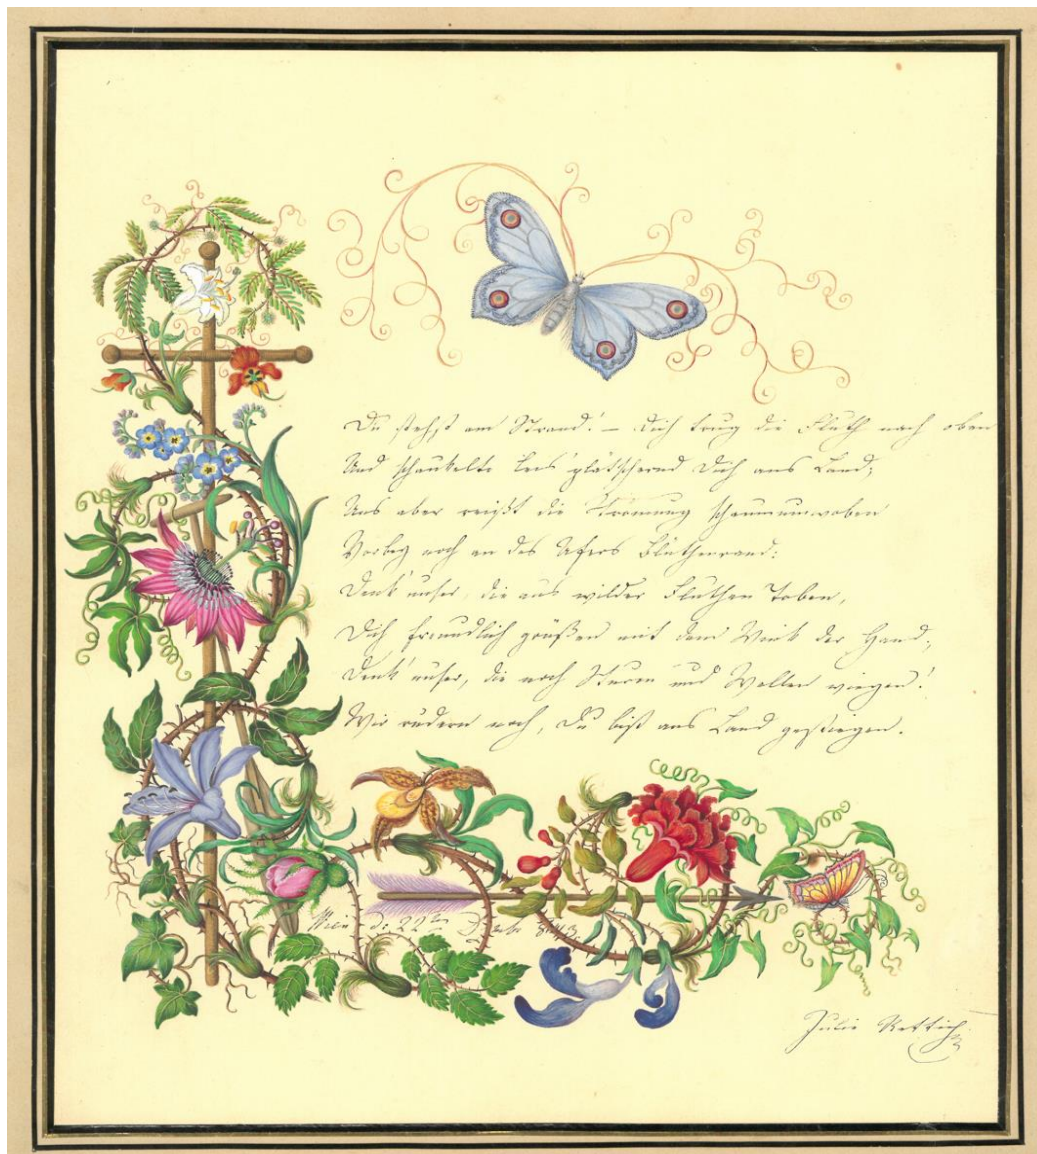 Du stehst am Strand! – Dich trug die Fluth nach oben
Und schaukelte leis' plätschernd Dich ans Land;
Uns aber reißt die Strömung schaumumwoben
Vorbey noch an des Ufers Blüthenrand:
Denk' unser, die aus wilder Fluthen Toben,
Dich freundlich grüßen mit dem Wink der Hand;
Denk' unser, die noch Sturm und Wellen wiegen!
Wir rudern noch, Du bist ans Land gestiegen.
Wien d: 22
Julie Rettich